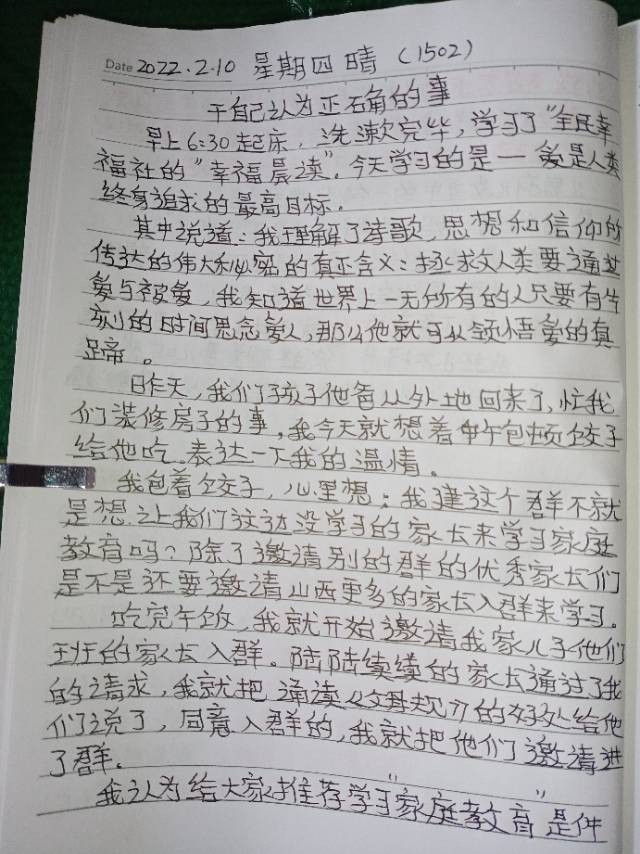 Date 2022.2.10 星期四 晴 (1502)
干自己认为正确的事
早上6:30起床，洗漱完毕，学习了“全民幸
福社的“幸福晨读”。今天学习的是一爱是人类
终身追求的最高目标。
其中说道：我理解了诗歌、思想和信仰所
传达的伟大秘密的真正含义：拯救人类要通过
爱与被爱，我知道世界上一无所有的人只要有片
刻的时间思念爱人，那么他就可以领悟爱的真
蹄。
昨天，我们孩子他爸从外地回来了，忙我
们装修房子的事，我今天就想着中午包顿饺子
给他吃，表达一下我的温情。
我包着饺子，心里想：我建这个群不就
是想让我们这边没学习的家长来学习家庭
教育吗？除了邀请别的群的优秀家长们
是不是还要邀请山西更多的家长入群来学习。
吃完午饭，我就开始邀请我家儿子他们
班的家长入群。陆陆续续的家长通过了我
的请求，我就把通读《父母规》的好处给他
们说了，同意入群的，我就把他们邀请进
了群。
我认为给大家推荐学习“家庭教育”是件